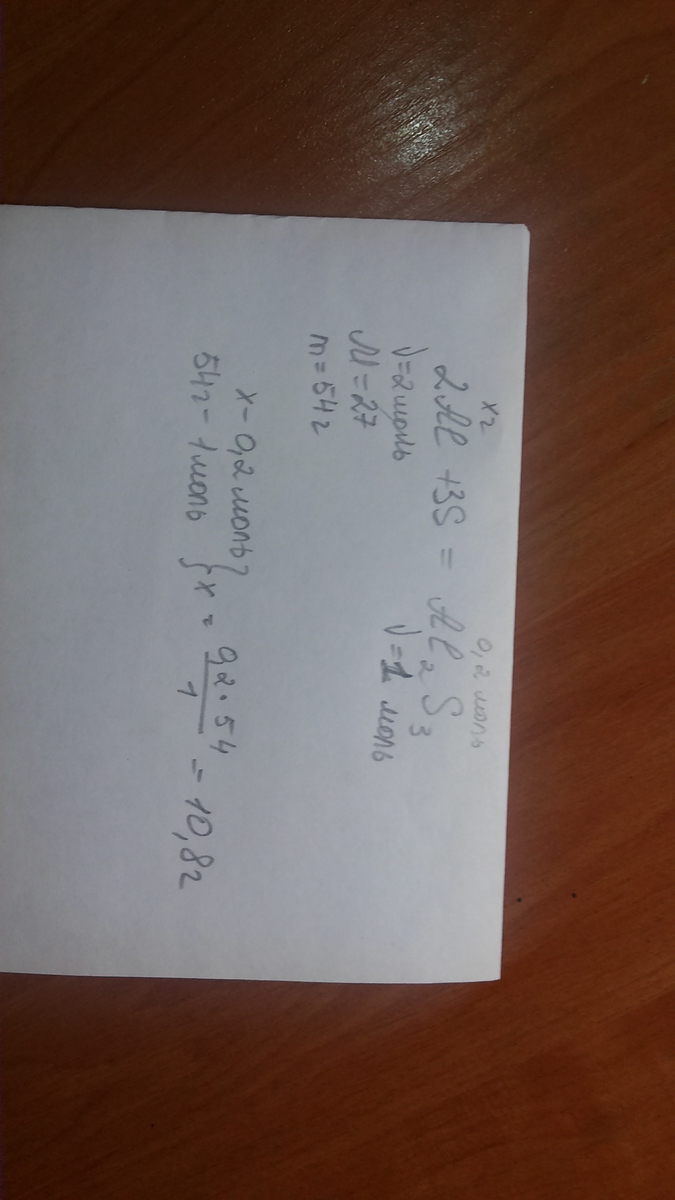 x г 0,2 моль
2Al + 3S = Al₂S₃
ν=2 моль ν=1 моль
M=27
m=54 г
x – 0,2 моль } x = 0,2 · 54 / 1 = 10,8 г
54 г – 1 моль